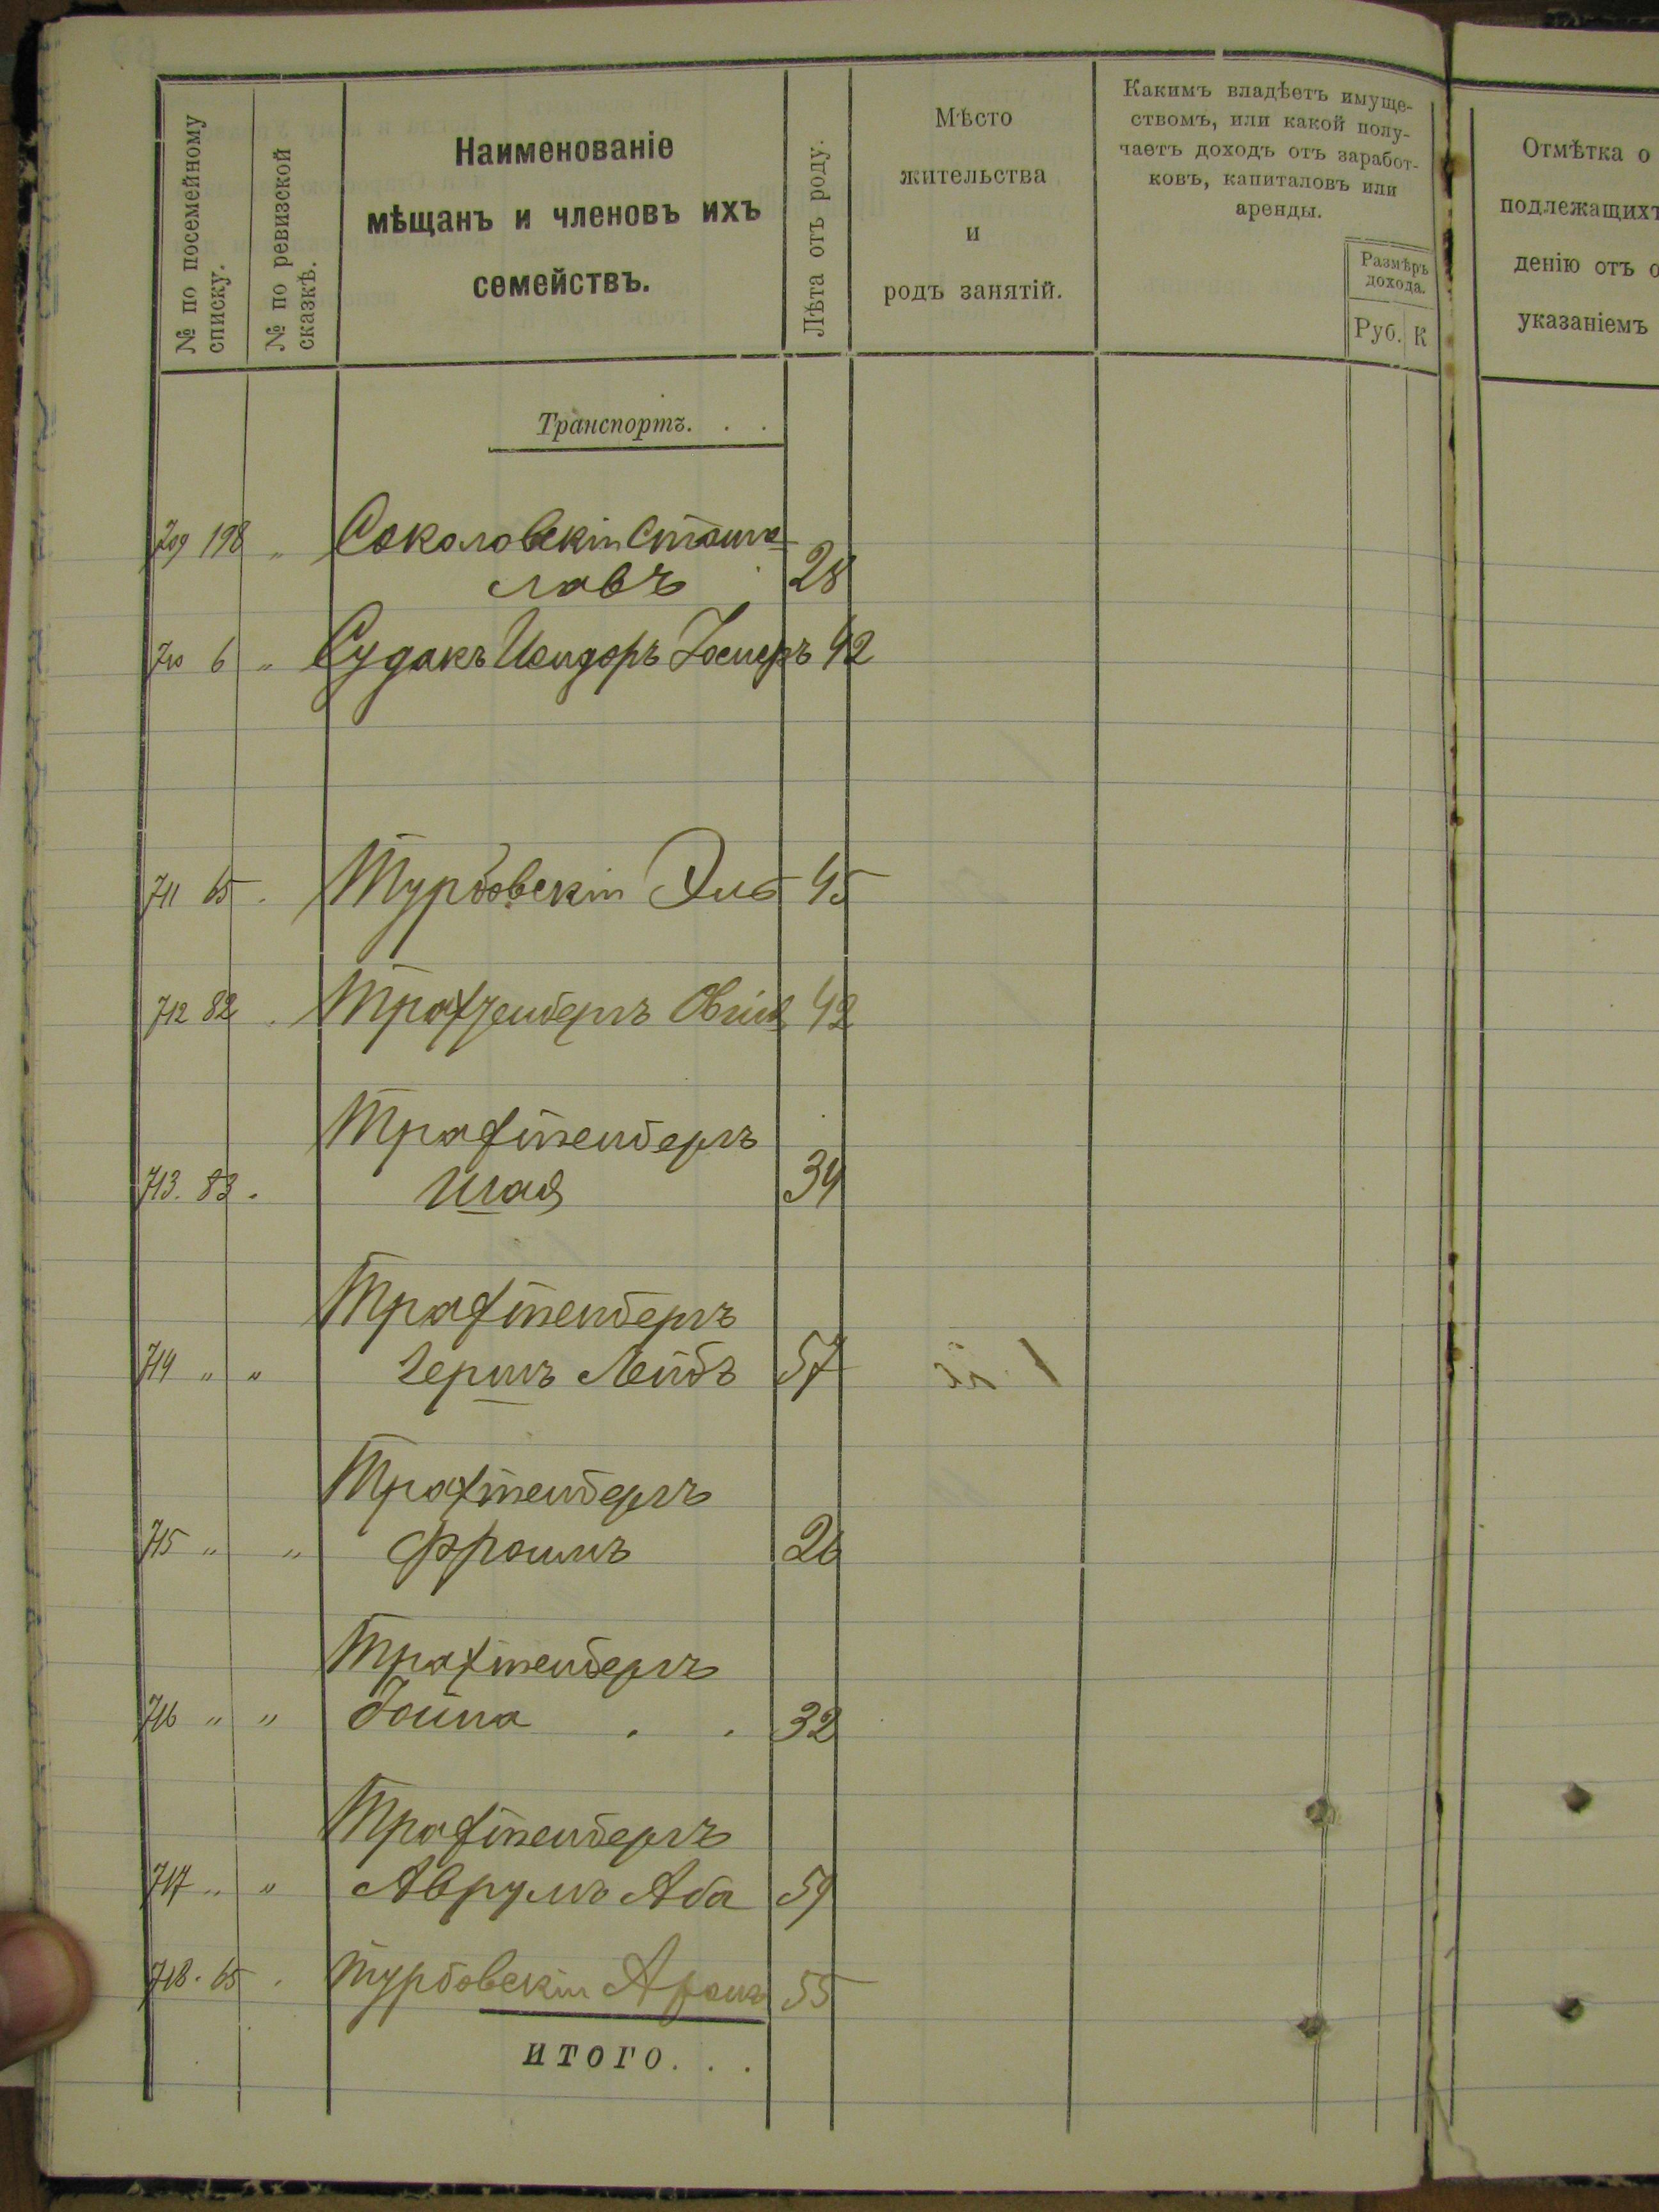 № по посемейному
списку.
№ по ревизской
сказкѣ.
Наименованіе
мѣщанъ и членовъ ихъ
семействъ.
Лѣта отъ роду.
Мѣсто
жительства
и
родъ занятій.
Какимъ владѣетъ имуще-
ствомъ, или какой полу-
чаетъ доходъ отъ заработ-
ковъ, капиталовъ или
аренды.
Размѣръ
дохода.
Руб. К
Отмѣтка о
подлежащихъ
денію отъ о
указаніемъ
Транспортъ. . .
709 198 „ Соколовскій Стани
славъ 28
710 6 „ Сударъ Исидоръ Іосифъ 42
711 65 . Турбовскій Эля 45
712 82 . Трахтенбергъ 42
Трахтенбергъ
713. 83 . Шая 34
Трахтенбергъ
714 „ „ Гершъ Лейбъ 57
Трахтенбергъ
715 „ „ Фроимъ 26
Трахтенбергъ
716 „ „ Іойна . . 32
Трахтенбергъ
717 „ „ Аврумъ Аба 59
718. 65 . Турбовскій Аронъ 55
ИТОГО. . .